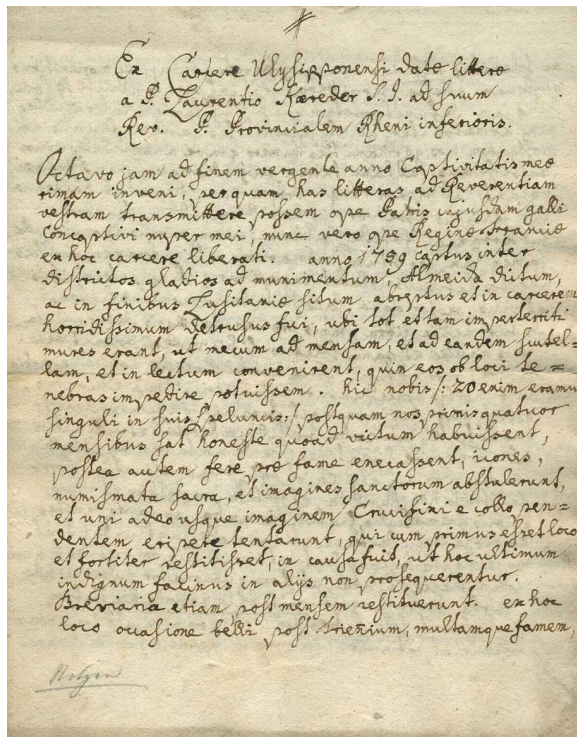 Ex Carcere Ulysipponensi datæ litteræ
a P. Laurentio Kæreder S. J. ad suum
Rev. P. Provincialem Rheni inferioris.
Octavo jam ad finem vergente anno Captivitatis meæ
rimam inveni, per quam has litteras ad Reverentiam
vestram transmittere possem ope Patris cujusdam galli
concaptivi nuper mei, nunc vero ope Reginæ Franciæ
ex hoc carcere liberati. anno 1759 captus inter
districtos gladios ad munimentum, Almeida dictum,
ac in finibus Lusitaniæ situm abreptus et in carcerem
horridissimum detrusus fui, ubi tot et tam imperterriti
mures erant, ut mecum ad mensam, et ad eandem scutel=
lam, et in lectum convenirent, quin eos ob loci te=
nebras impedire potuissem. hic nobis /: 20 enim eramus
singuli in suis speluncis :/ postquam nos primis quatuor
mensibus sat honeste quoad victum habuissent,
postea autem fere præ fame enecassent, icones,
numismata sacra, et imagines sanctorum abstulerunt,
et uni adeo usque imaginem Crucifixi e collo pen=
dentem eripere tentarunt, qui cum primus esset loco
et fortiter restitisset, in causa fuit, ut hoc ultimum
indignum facinus in alijs non prosequerentur.
Breviaria etiam post mensem restituerunt. ex hoc
loco occasione belli post trienium, multamque famem,